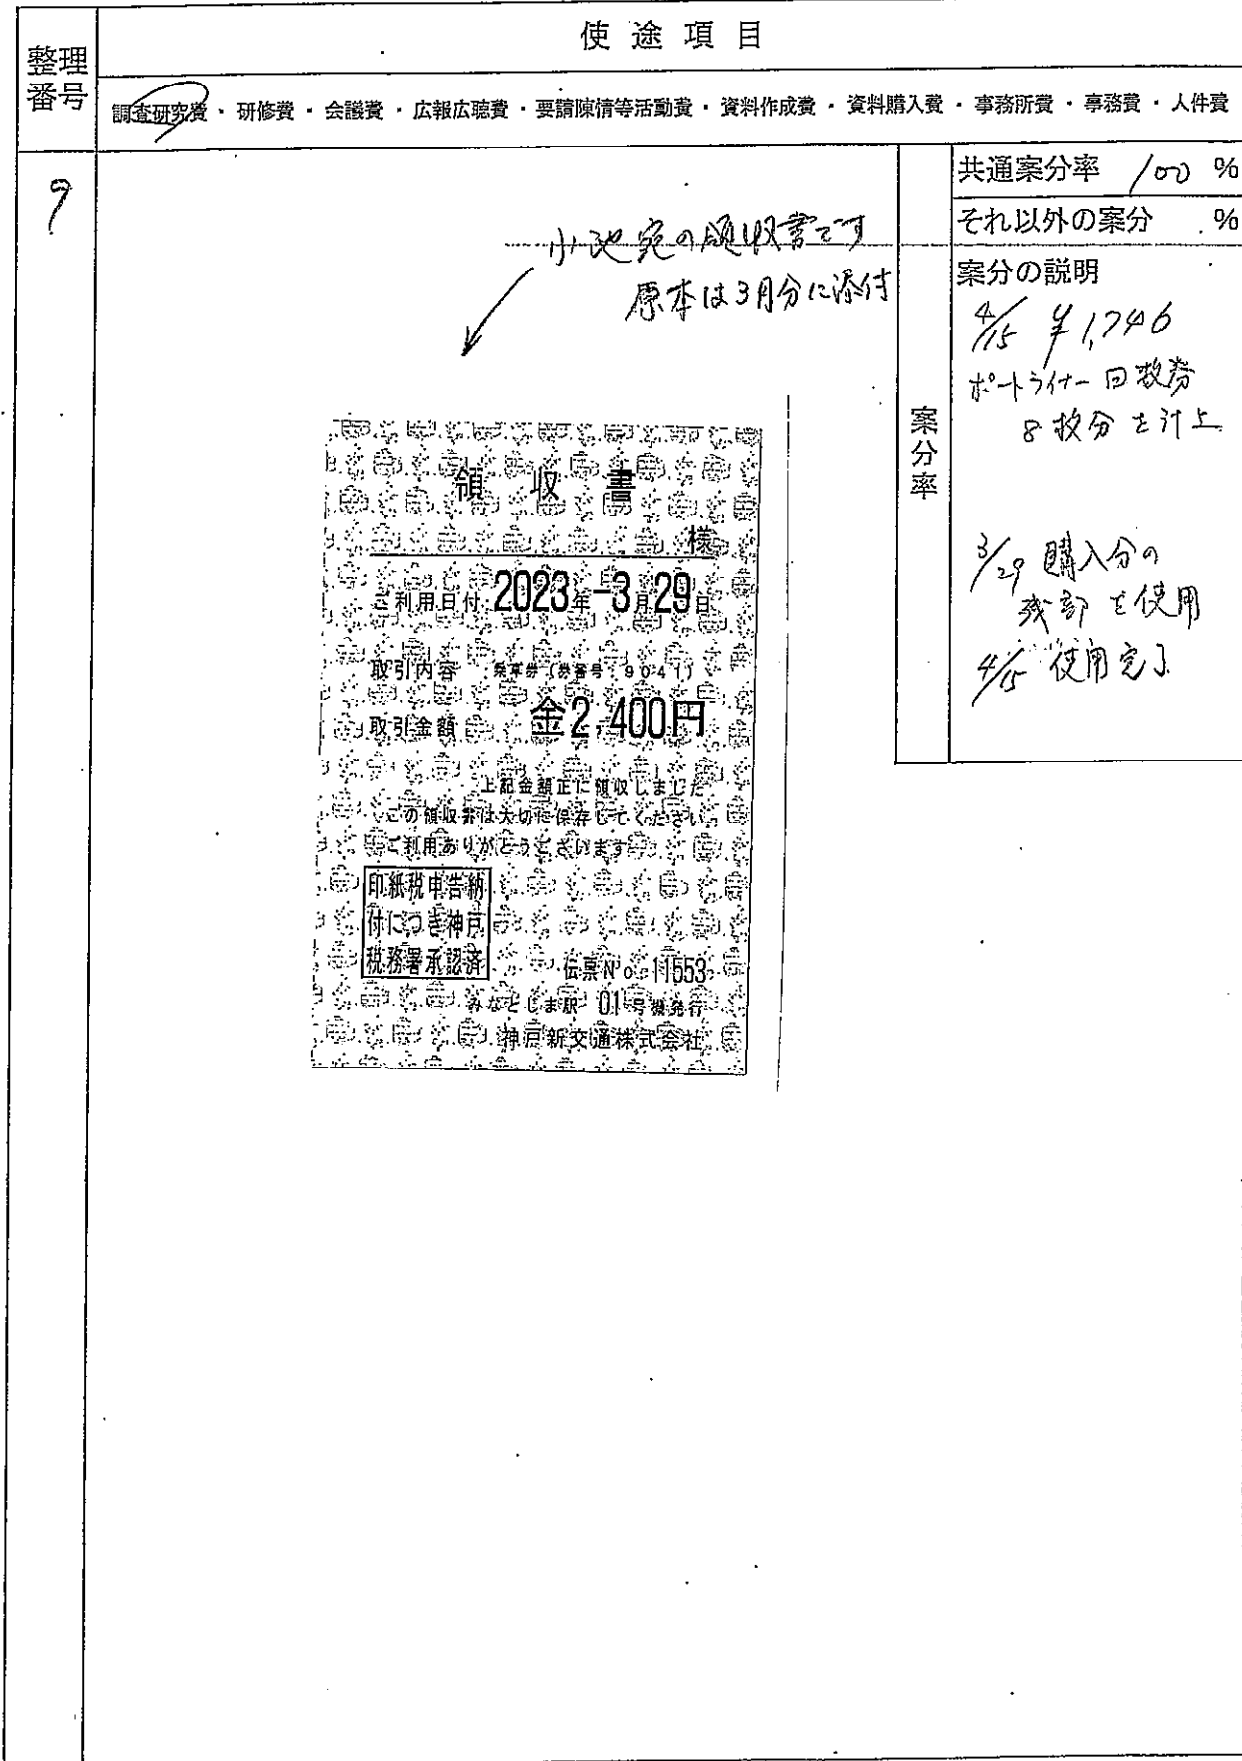 使途項目
整理番号
調査研究費・研修費・会議費・広報広聴費・要請陳情等活動費・資料作成費・資料購入費・事務所費・事務費・人件費
9
小池宛の領収書です
原本は3月分に添付
案分率
共通案分率 100 %
それ以外の案分 %
案分の説明
4/15 ¥1,746
ポートライナー回数券
8枚分を計上
3/29 購入分の
残部を使用
4/15 使用完了
領収書
様
ご利用日付 2023年-3月29日
取引内容 乗車券(券番号 9041)
取引金額 金2,400円
上記金額正に領収しました
この領収書は大切に保存してください
ご利用ありがとうございます
印紙税申告納
付につき神戸
税務署承認済
伝票No 11553
みなとじま駅 01号機発行
神戸新交通株式会社